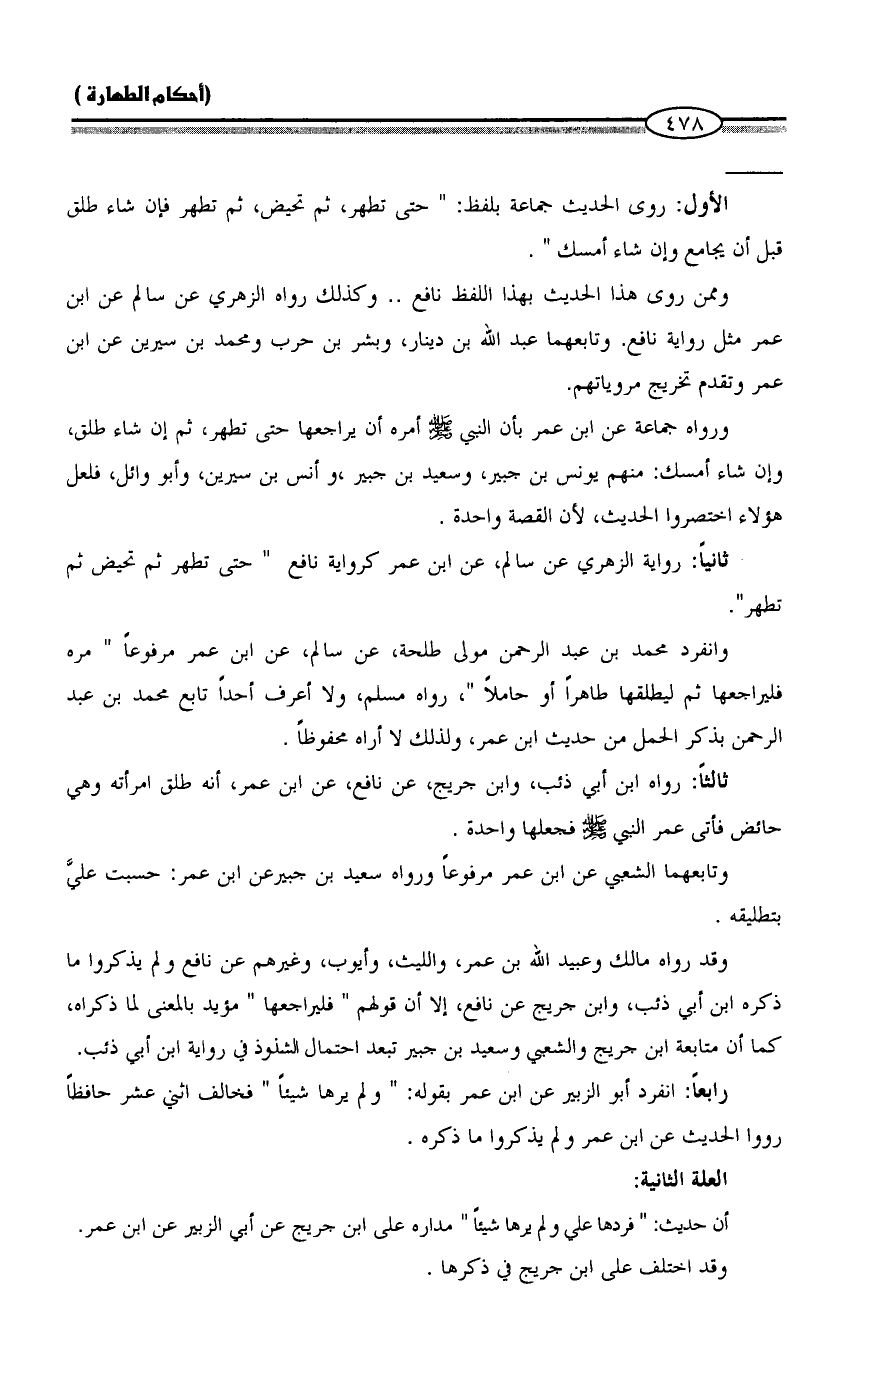 (أحكام الطهارة)
٤٧٨
الأول: روى الحديث جماعة بلفظ: " حتى تطهر، ثم تحيض، ثم تطهر فإن شاء طلق
قبل أن يجامع وإن شاء أمسك " .
وممن روى هذا الحديث بهذا اللفظ نافع .. وكذلك رواه الزهري عن سالم عن ابن
عمر مثل رواية نافع. وتابعهما عبد الله بن دينار، وبشر بن حرب ومحمد بن سيرين عن ابن
عمر وتقدم تخريج مروياتهم.
ورواه جماعة عن ابن عمر بأن النبي ﷺ أمره أن يراجعها حتى تطهر، ثم إن شاء طلق،
وإن شاء أمسك: منهم يونس بن جبير، وسعيد بن جبير ،و أنس بن سيرين، وأبو وائل، فلعل
هؤلاء اختصروا الحديث، لأن القصة واحدة .
ثانياً: رواية الزهري عن سالم، عن ابن عمر كرواية نافع " حتى تطهر ثم تحيض ثم
تطهر".
وانفرد محمد بن عبد الرحمن مولى طلحة، عن سالم، عن ابن عمر مرفوعاً " مره
فليراجعها ثم ليطلقها طاهراً أو حاملاً "، رواه مسلم، ولا أعرف أحداً تابع محمد بن عبد
الرحمن بذكر الحمل من حديث ابن عمر، ولذلك لا أراه محفوظاً .
ثالثاً: رواه ابن أبي ذئب، وابن جريج، عن نافع، عن ابن عمر، أنه طلق امرأته وهي
حائض فأتى عمر النبي ﷺ فجعلها واحدة .
وتابعهما الشعبي عن ابن عمر مرفوعاً ورواه سعيد بن جبيرعن ابن عمر: حسبت عليَّ
بتطليقه .
وقد رواه مالك وعبيد الله بن عمر، والليث، وأيوب، وغيرهم عن نافع ولم يذكروا ما
ذكره ابن أبي ذئب، وابن جريج عن نافع، إلا أن قولهم " فليراجعها " مؤيد بالمعنى لما ذكراه،
كما أن متابعة ابن جريج والشعبي وسعيد بن جبير تبعد احتمال الشذوذ في رواية ابن أبي ذئب.
رابعاً: انفرد أبو الزبير عن ابن عمر بقوله: " ولم يرها شيئاً " فخالف اثني عشر حافظاً
رووا الحديث عن ابن عمر ولم يذكروا ما ذكره .
العلة الثانية:
أن حديث: " فردها علي ولم يرها شيئاً " مداره على ابن جريج عن أبي الزبير عن ابن عمر.
وقد اختلف على ابن جريج في ذكرها .